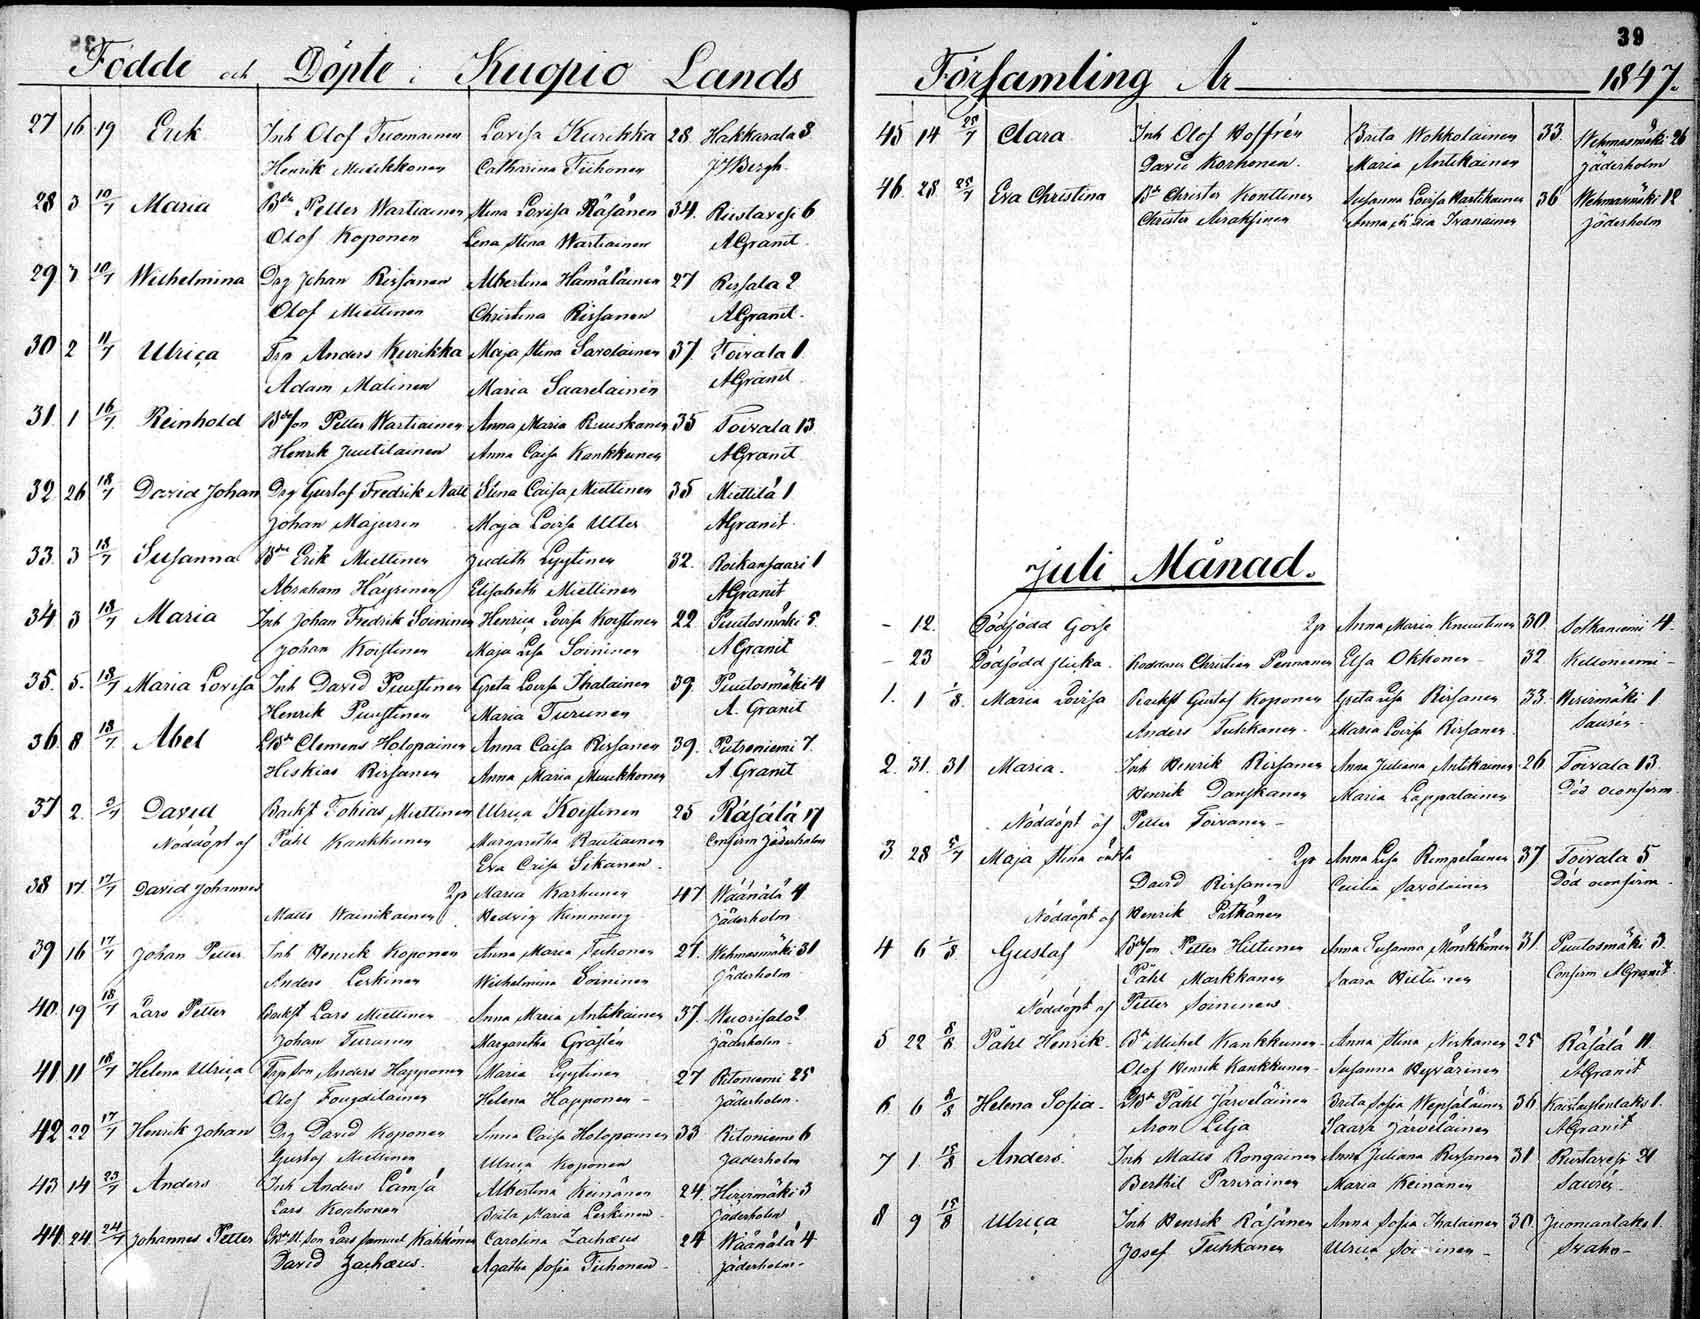 39
Födde och Döpte i Kuopio Lands
Församling År 1847.
27 16 19 Erik Inh Olof Tuomainen Lovisa Kurikka 28 Hakkarala 3
Henrik Muikkonen Catharina Tiihonen
28 3 10/7 Maria Bde Petter Wartiainen Stina Lovisa Räsänen 34. Riistavesi 6
Olof Koponen Lena Stina Wartiainen A Granit.
29 3 10/7 Wilhelmina Drg Johan Rissanen Albertina Hämäläinen 27 Rissala 2
Olof Miettinen Christina Rissanen A Granit.
30 2 11/7 Ulrica Anders Kurikka Maja Stina Savolainen 37 Toivala 1
Adam Malinen Maria Saarelainen A Granit
31 1 16/7 Reinhold Bdeson Petter Wartiainen Anna Maria Ruuskanen 35 Toivala 13
Henrik Juutilainen Anna Caisa Kankkunen A Granit
32 26 18/7 David Johan Drg Gustaf Fredrik Stina Caisa Miettinen 35 Miettilä 1
Johan Majurin Maja Loisa A Granit
33. 3 18/7 Susanna Bde Erik Miettinen Judith Lyytinen 32. 1
Abraham Häyrinen Elisabeth Miettinen A Granit
34 3 18/7 Maria Inh Johan Fredrik Soininen Henrica Loisa Koistinen 22 Puutosmäki 5.
Johan Koistinen Maja Lisa Soininen A Granit
35. 5. 18/7 Maria Lovisa Inh David Puustinen Greta Loisa Ihalainen 39. Puutosmäki 4
Henrik Puustinen Maria Turunen A. Granit
36. 8 18/7 Abel Clemens Holopainen Anna Caisa Rissanen 39. 7.
Hiskias Rissanen Anna Maria Muikkonen A Granit
37 2. David Backst Tobias Miettinen Ulrica Koistinen 25 Räsälä 17
Nöddöpt af Påhl Kankkunen Margaretha Rautiainen Confirm Jäderholm
Eva Caisa Sikanen.
38 17 17/7 David Johannes Maria Karhunen 47 Wäänälä 4
Matts Wainikainen Hedvig Kemming Jäderholm
39 16 17/7 Johan Petter Inh Henrik Koponen Anna Maria Tiihonen 27. Wehmasmäki 31
Anders Leskinen Wilhelmina Soininen Jäderholm
40. 19 18/7 Lars Petter Backst Lars Miettinen Anna Maria Antikainen 37. Wuorisalo 2
Johan Turunen Margaretha Jäderholm
41 11 18/7 Helena Ulrica Anders Happonen Maria Lyytinen 27 Ritoniemi 25
Olof Helena Happonen Jäderholm.
42 22 17/7 Henrik Johan Drg David Koponen Anna Caisa Holopainen 33 Ritoniemi 6
Gustaf Miettinen Ulrica Koponen Jäderholm
43 14 23/7 Anders Inh Anders Lämsä Albertina Keinänen 24 Hirvimäki 3
Lars Korhonen Brita Maria Leskinen Jäderholm
44. 24 24/7 Johannes Petter Lars Samuel Kähkönen Carolina Zachæus 24 Wäänälä 4
David Zachæus. Agatha Sofia Tiihonen Jäderholm
45 14 25/7 Clara Inh Olof Hoffrén Brita Wokkolainen 33. Wehmasmäki 26
David Korhonen. Maria Antikainen Jäderholm
46. 28 25/7 Eva Christina Bde Christer Konttinen Susanna Loisa Martikainen 36 Wehmasmäki 12
Christer Asraksinen Anna Maria Jäderholm
Juli Månad.
- 12. Dödfödd Gosse Anna Maria Knuutinen 30. Sotkaniemi 4.
- 23 Dödfödd flicka. Christian Pennanen Elsa Okkonen 32 Kelloniemi -
1. 1 1/8. Maria Loisa Backst Gustaf Koponen Greta Lisa Rissanen 33. Hirvimäki 1
Anders Tuhkanen. Maria Loisa Rissanen Saurén.
2. 31. 31 Maria. Inh Henrik Rissanen Anna Juliana Antikainen 26 Toivala 13
Henrik Danskanen Maria Lappalainen Död oconfirm.
Nöddöpt af Petter Toivanen -
3 28 5/7 Maja Stina oäkta Anna Lisa Rimpeläinen 37 Toivala 5
David Rissanen Cecilia Savolainen Död oconfirm.
Nöddöpt af Henrik Pitkänen
4 6 1/8 Gustaf Bdeson Petter Hiltunen Anna Susanna Mönkkönen 31. Puutosmäki 3.
Påhl Markkanen Saara Hiltunen Confirm A Granit
Nöddöpt af Petter Soininen
5 22 8/8 Påhl Henrik. Bde Michel Kankkunen Anna Stina Niskanen 25 Räsälä 11
Olof Henrik Kankkunen Susanna Hyvärinen A Granit
6 6 8/8 Helena Sofia Påhl Järveläinen Brita Sofia Wepsäläinen 36 1.
Aron Lilja Saara Järveläinen A Granit
7 1 15/8 Anders. Inh Matts Rongainen Anna Juliana Rissanen 31 Riistavesi 21
Berthil Parviainen Maria Keinänen Saurén.
8 9 15/8 Ulrica Inh Henrik Räsänen Anna Sofia Ihalainen 30. Juonianlaks 1.
Josef Tuhkanen Ulrica Soininen